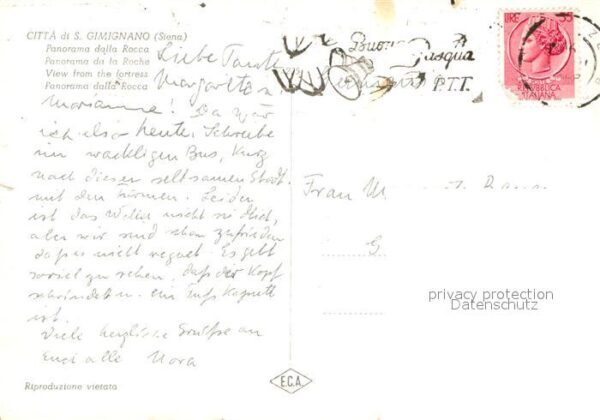 CITTÀ di S. GIMIGNANO (Siena)
Panorama dalla Rocca
Panorama da la Roche
View from the fortress
Panorama dalla Rocca
Buona Pasqua
P.T.T.
LIRE 35
REPUBBLICA
ITALIANA
Liebe Tante
Margarete u
Marianne! Da wär
ich also heute. Schreibe
im wackligen Bus, kurz
nach dieser seltsamen Stadt
mit den Türmen. Leider
ist das Wetter nicht so
aber wir sind schon zufrieden
daß es nicht regnet. Es gibt
soviel zu sehen, daß der Kopf
schwindet u. ein
ist.
Viele herzliche Grüße an
Euch alle Nora
Frau M
G
privacy protection
Datenschutz
E.C.A.
Riproduzione vietata